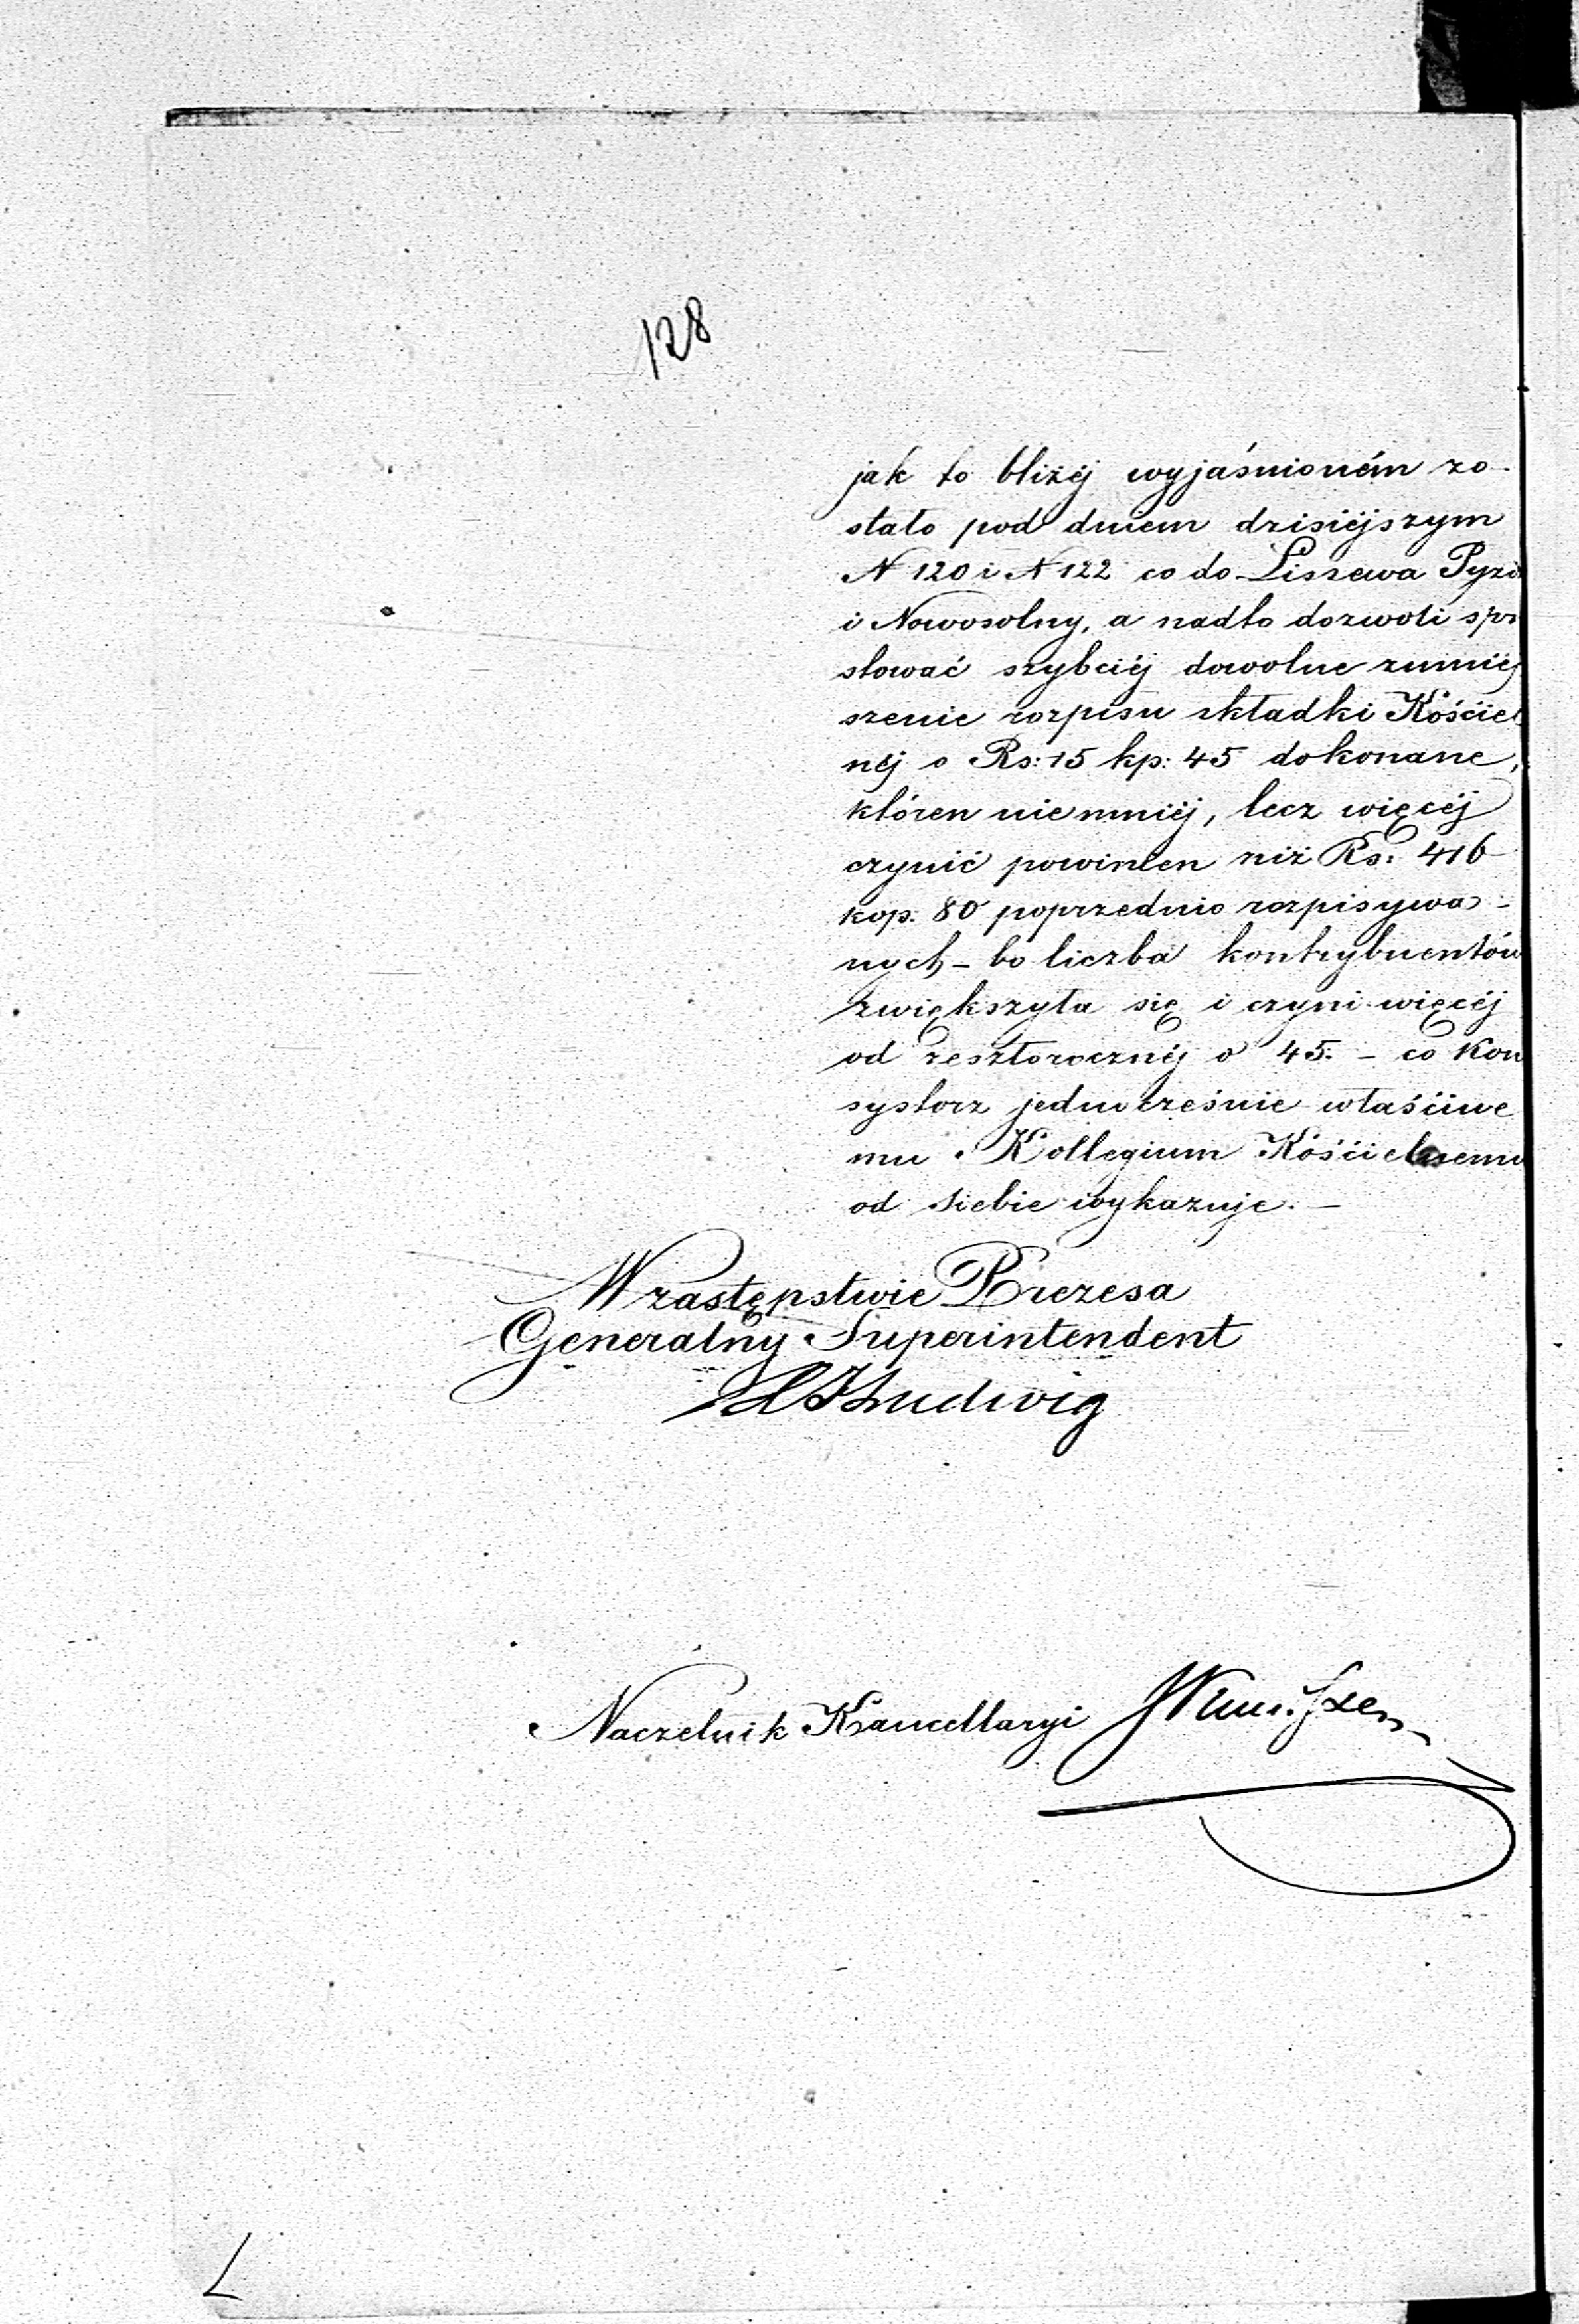 128
jak to bliżéj wyjaśnioném zo-
stało pod dniem dzisiéjszym
N 120 i N 122 co do Liszewa Pyzd
i Nowosolny, a nadto dozwoli spro
stować szybciéj dowolne zmniéj
szenie rozpisu składki Kościel
néj o Rs: 15 kp: 45 dokonane,
któren nie mniéj, lecz więcéj
czynić powinien niż Rs: 416
kop. 80 poprzednio rozpisywa-
nych - bo liczba kontrybuentów
zwiększyła się i czyni więcéj
od zeszłorocznéj o 45. - co Kon
systorz jednocześnie właściwe
mu Kollegium Kościelnemu
od siebie wykazuje. -
W zastępstwie Prezesa
Generalny Superintendent
Ludwig
Naczelnik Kancellaryi